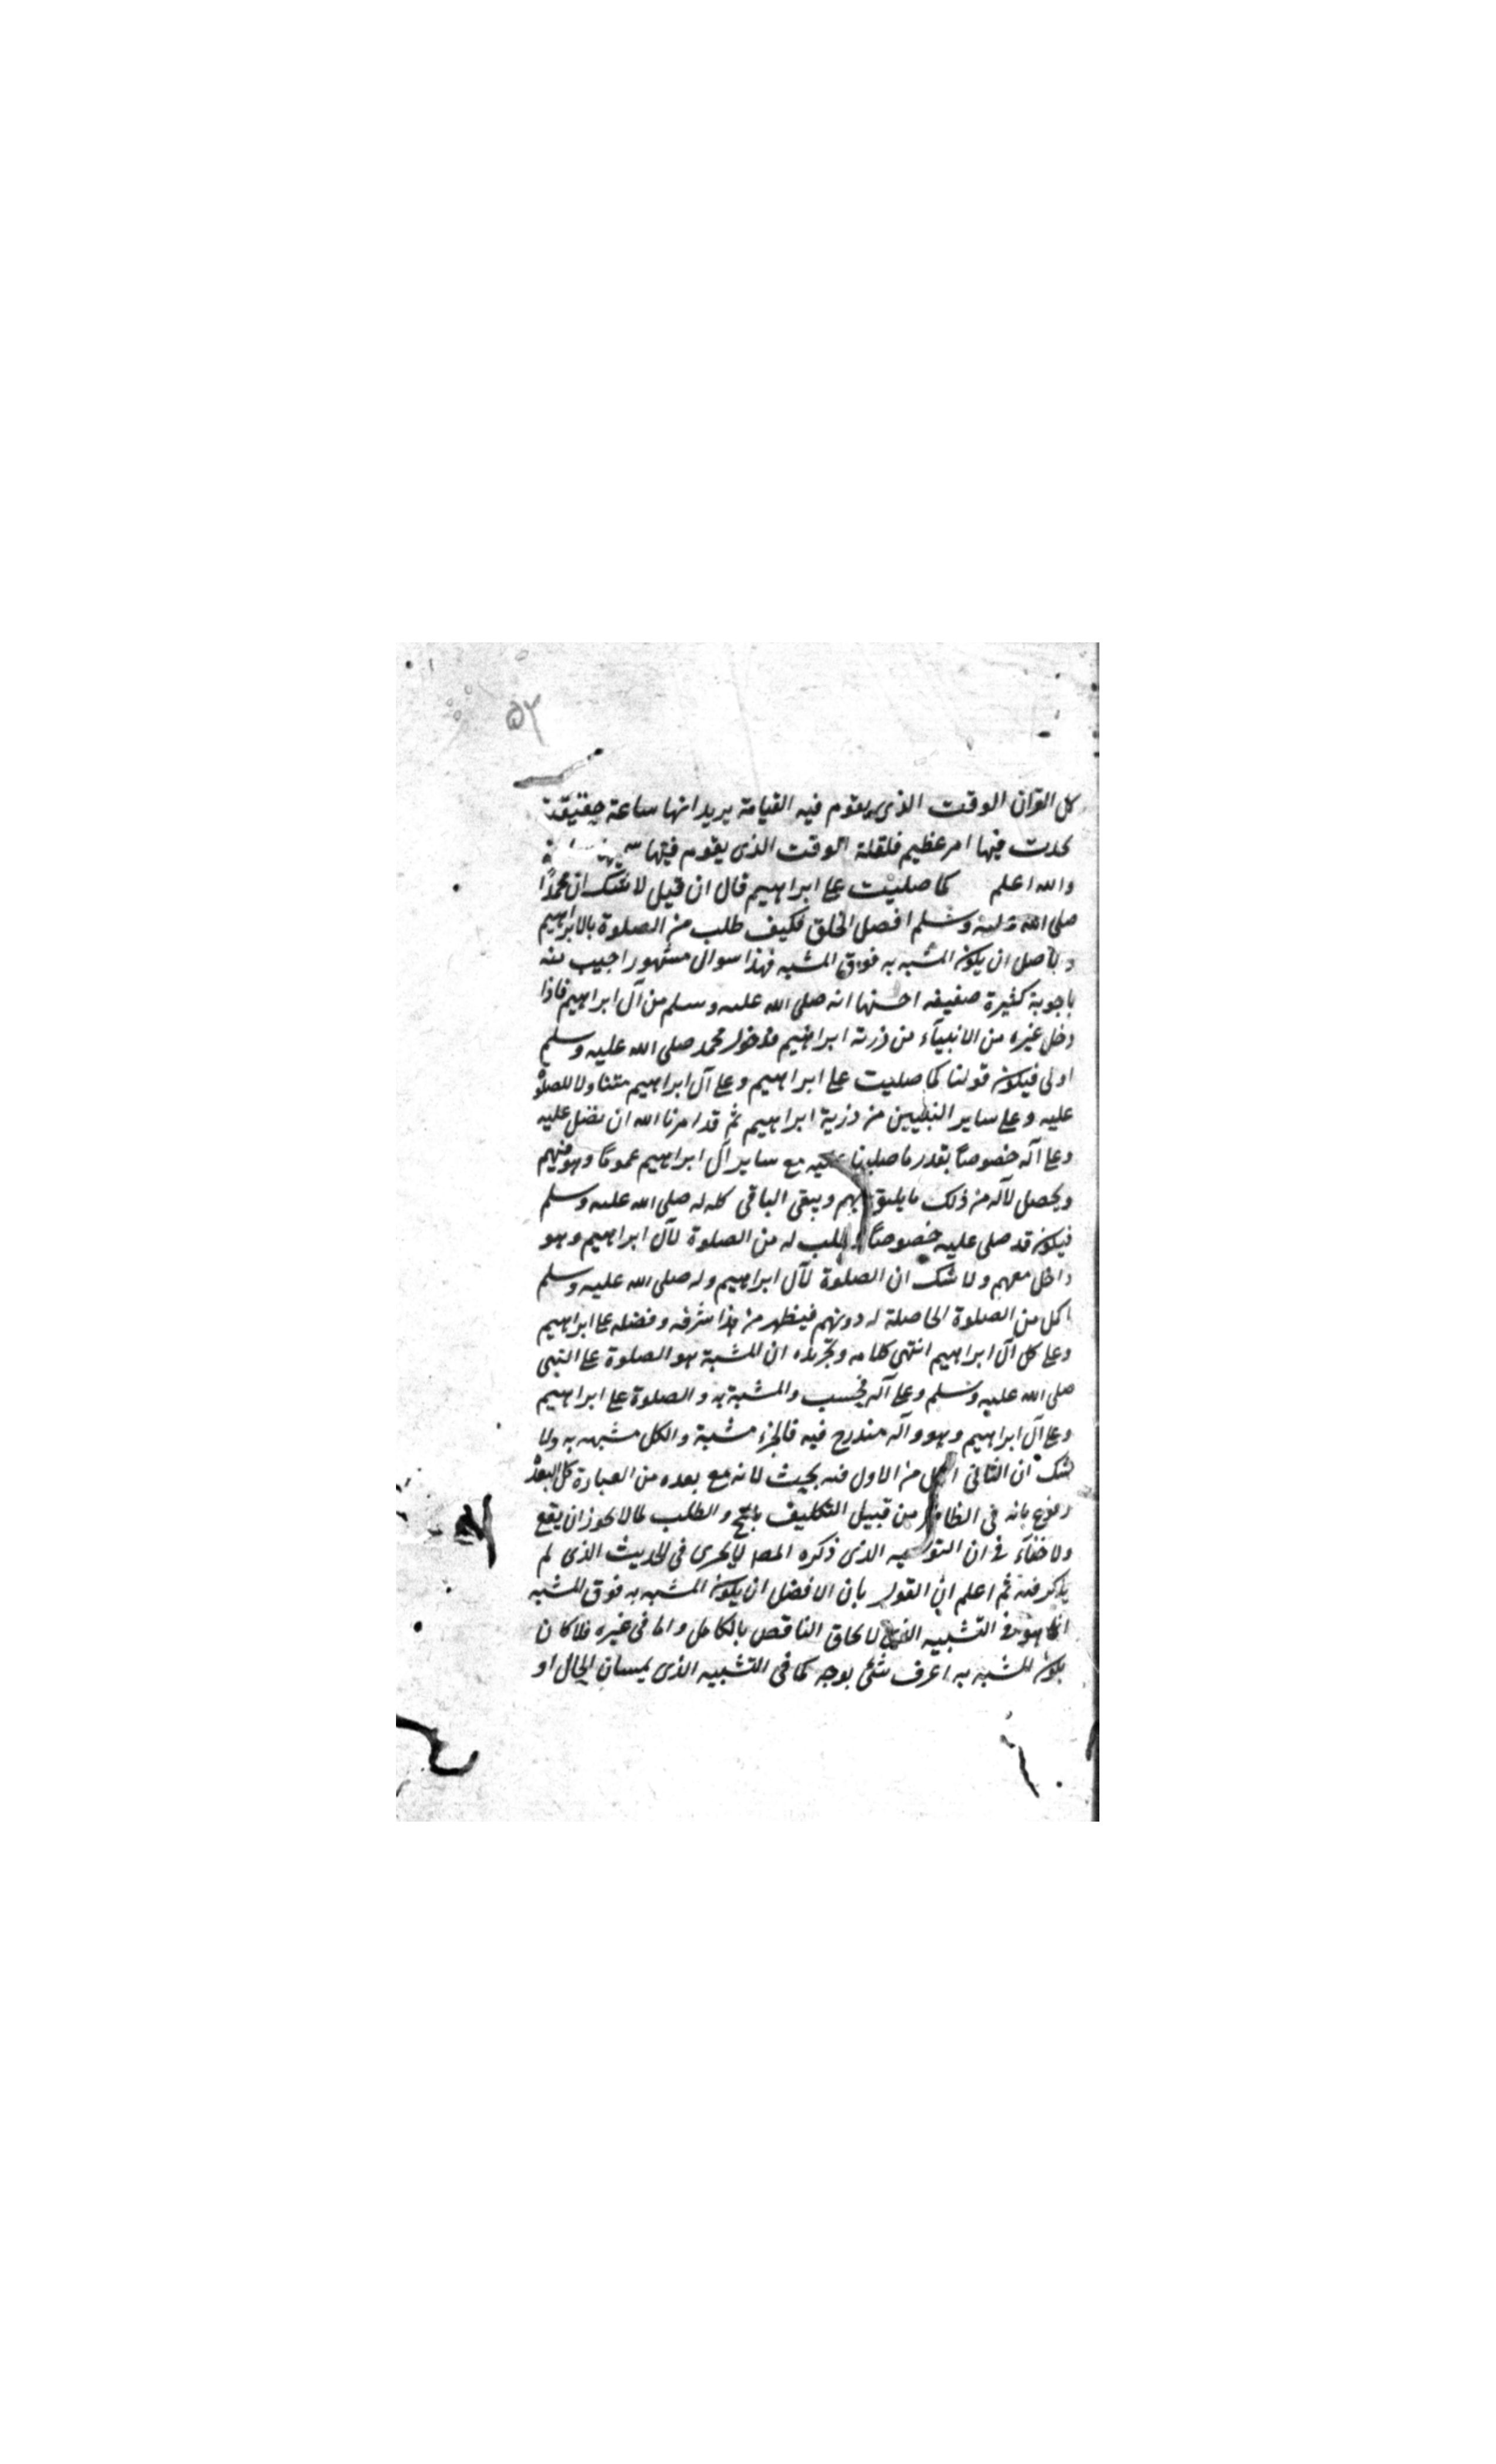 ٥٢
كل القرآن الوقت الذى يقوم فيه القيامة يريد انها ساعة حقيقة
يحدث فيها امر عظيم فلقلة الوقت الذى يقوم فيها
والله اعلم كما صليت على ابراهيم قال ان قيل لا شك ان محمدا
صلى الله عليه وسلم افضل الخلق فكيف طلب من الصلوة بالابراهيم
والاصل ان يكون المشبه به فوق المشبه فهذا سوال مشهور اجيب عنه
باجوبة كثيرة ضعيفه احسنها انه صلى الله عليه وسلم من آل ابراهيم فاذا
دخل غيره من الانبيآء من ذريه ابراهيم فدخول محمد صلى الله عليه وسلم
اولى فيكون قولنا كما صليت على ابراهيم وعلى آل ابراهيم متناولا للصلوة
عليه وعلى ساير النبيين من ذرية ابراهيم ثم قد امرنا الله ان نصلى عليه
وعلى آله خصوصاً بقدر ما صلينا عليه مع ساير آل ابراهيم عموماً وهو فيهم
ويحصل لآله من ذلك ما يليق بهم ويبقى الباقى كله له صلى الله عليه وسلم
فيكون قد صلى عليه خصوصاً وطلب له من الصلوة لآل ابراهيم وهو
داخل معهم ولا شك ان الصلوة لآل ابراهيم وله صلى الله عليه وسلم
اكمل من الصلوة الحاصلة له دونهم فيظهر من هذا شرفه وفضله على ابراهيم
وعلى كل آل ابراهيم انتهى كلامه وتحريره ان المشبة هو الصلوة على النبى
صلى الله عليه وسلم وعلى آله فحسب والمشبة به والصلوة على ابراهيم
وعلى آل ابراهيم وهو وآله مندرج فيه فالجزء مشبة والكل مشبهه به ولا
شك ان الثانى اكمل من الاول فيه بحيث لانه مع بعده من العبارة كل البعد
مدفوع بانه فى الظاهر من قبيل التكليف والطلب لما لا يجوز ان يقع
ولا خفآء فى ان التوجيه الذى ذكره المص لا يجرى فى الحديث الذى لم
يذكر فيه ثم اعلم ان القول بان الافضل ان يكون المشبه به فوق المشبه
انما هو فى التشبيه الذى لالحاق الناقص بالكامل واما فى غيره فلا كان
يكون المشبه به اعرف شئ بوجه كما فى التشبيه الذى لبيان الحال او